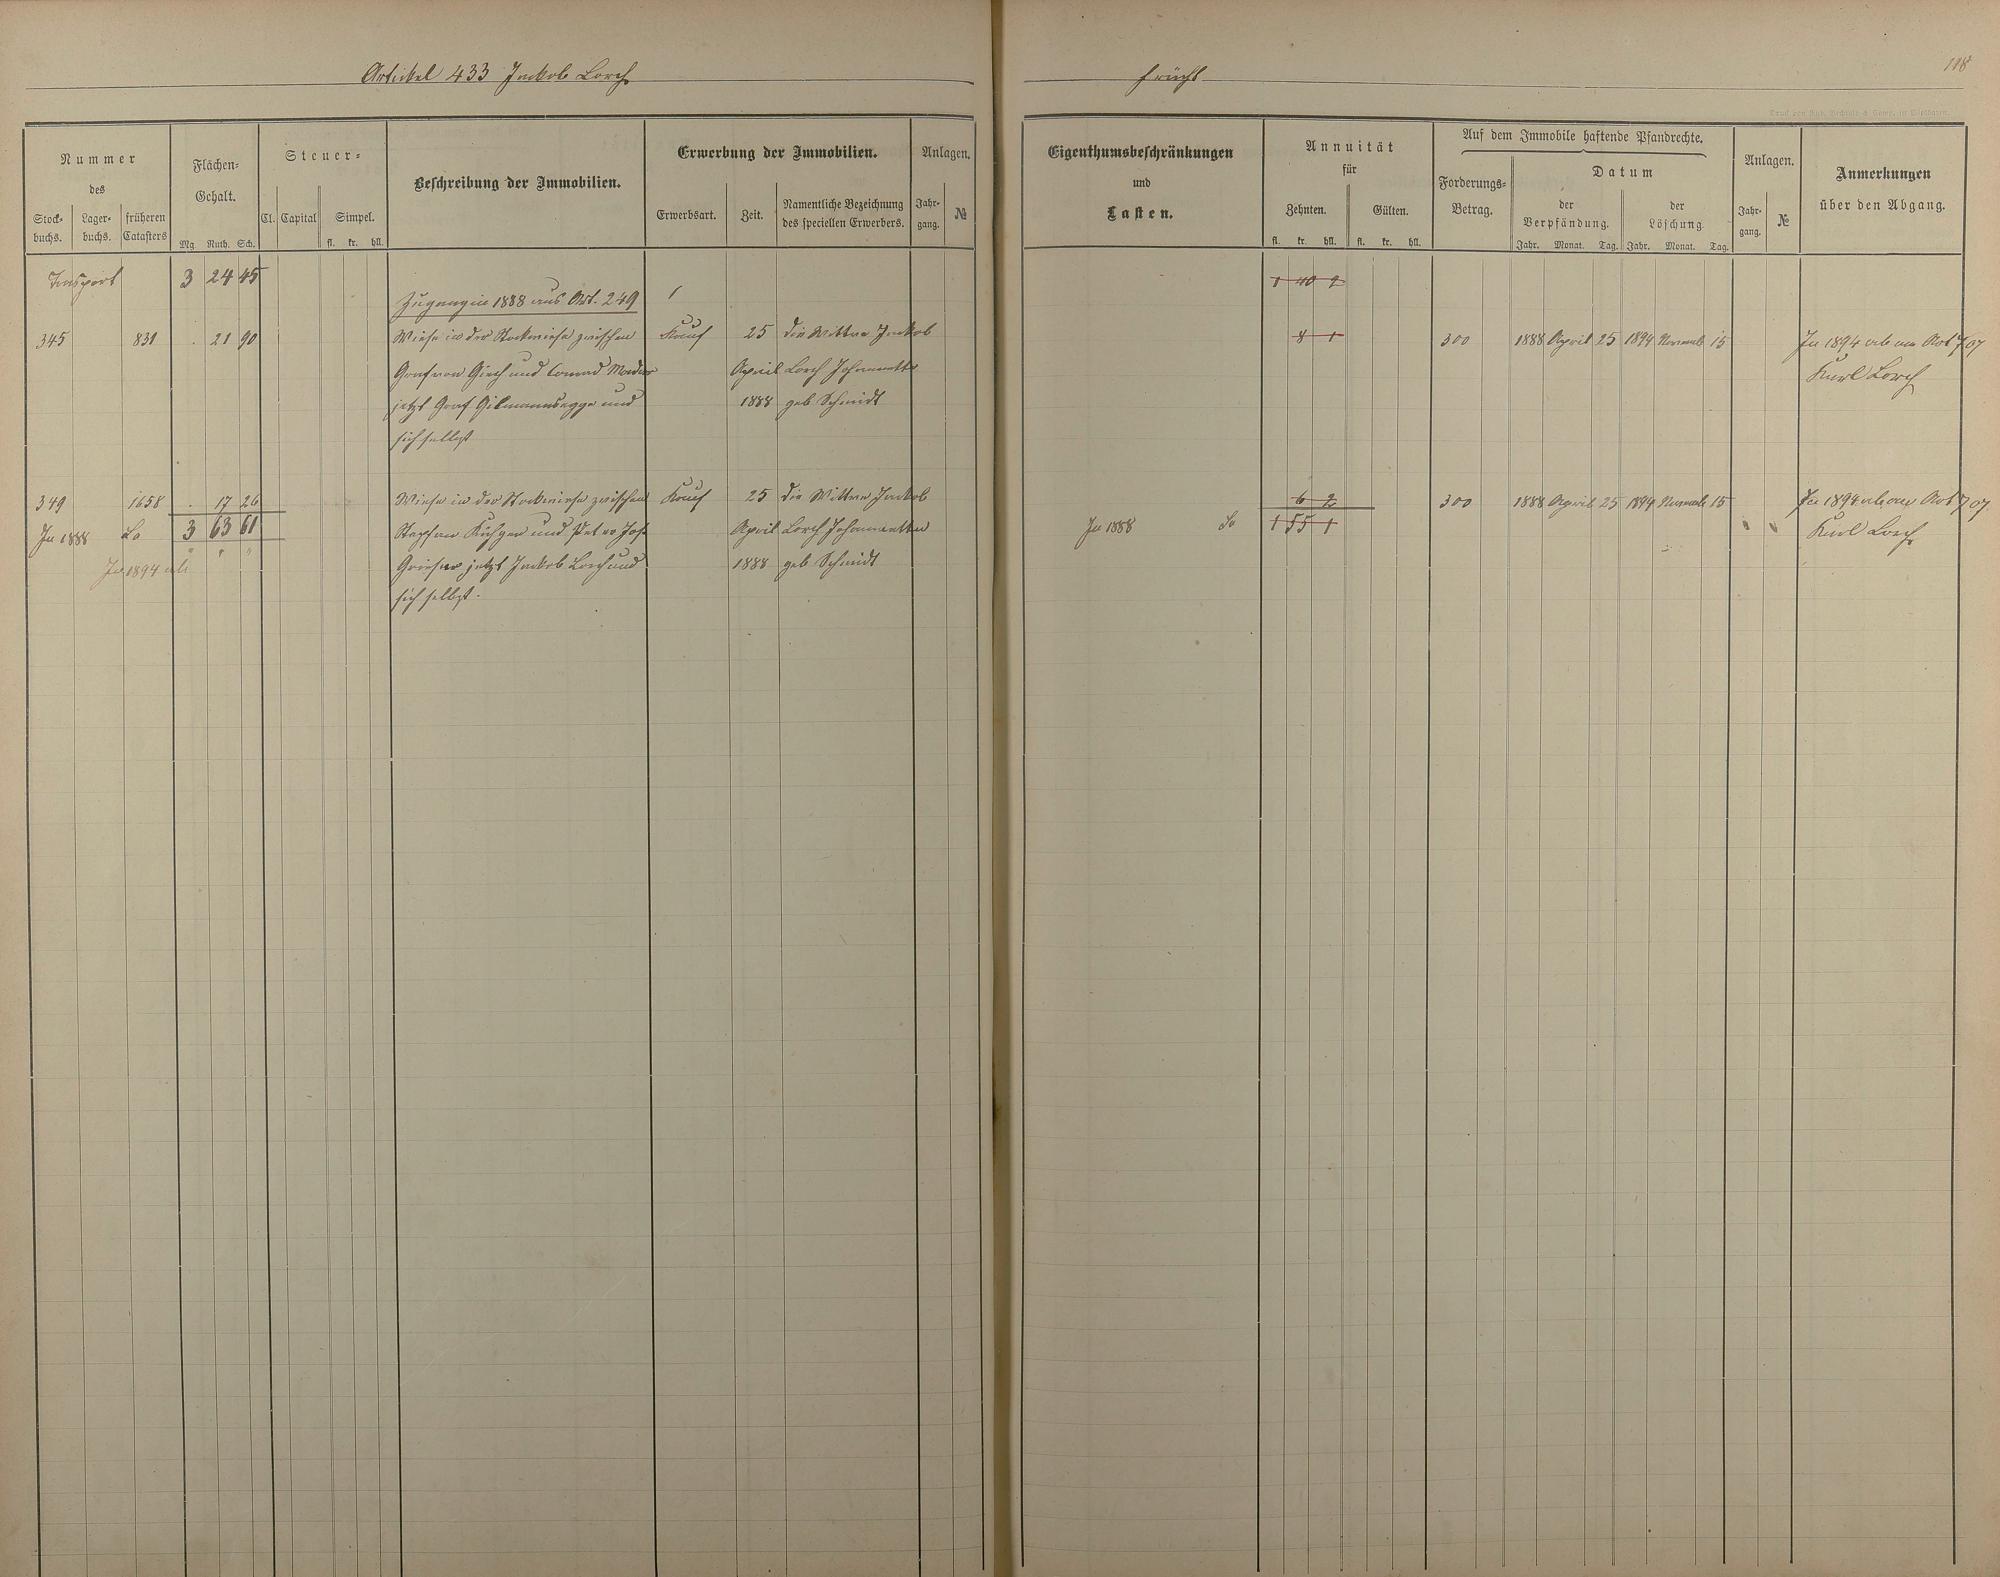 Artickel 433 Jackob Lorch
Frücht
118
Nummer
des
Stock-
buchs.
Lager-
buchs.
früheren
Catasters
Flächen-
Gehalt.
Mg. Ruth. Sch.
Steuer-
Cl. Capital Simpel.
fl. kr. hll.
Beschreibung der Immobilien.
Erwerbung der Immobilien.
Erwerbsart. Zeit.
Namentliche Bezeichnung
des speciellen Erwerbers.
Anlagen.
Jahr-
gang.
№
Eigenthumsbeschränkungen
und
Lasten.
Annuität
für
Zehnten. Gülten.
fl. kr. hll. fl. kr. hll.
Auf dem Immobile haftende Pfandrechte.
Forderungs-
Betrag.
Datum
der
Verpfändung.
der
Löschung
Jahr. Monat. Tag. Jahr. Monat. Tag.
Anlagen.
Jahr-
gang.
№
Anmerkungen
über den Abgang.
Transport 3 24 45
1 40 2
Zugang in 1888 aus Art. 249
345 831 . 21 90 Wiese in der Stockwiese zwischen Kauf 25 die Wittwe Jackob
8 1 300 1888 April 25 1894 Novemb 15 In 1894 ab an Art 707
Graf von Giech und Conrad April Lorch Johannette
Karl Lorch
jetzt Graf und 1888 geb Schmidt
sich selbst
349 1658 . 17 26 Wiese in der Stockwiese zwischen Kauf 25 die Wittwe Jackob
6 2 300 1888 April 25 1894 Novemb 15 In 1894 ab an Art 707
In 1888 Sa 3 63 61 und Peter Jos April Lorch Johannetta
In 1888 Sa 1 55 1 Karl Lorch
In 1894 ab jetzt Jackob Lorch und 1888 geb Schmidt
sich selbst.